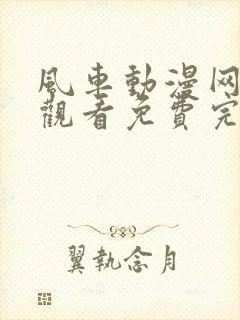 風車動漫网
觀看免費完
翼執念月